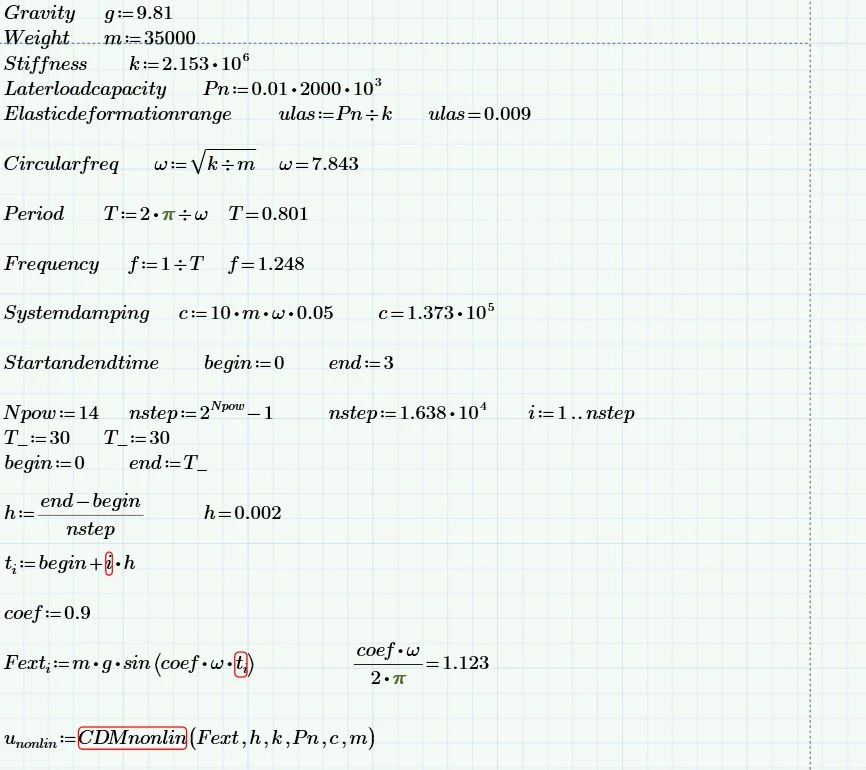 Gravity g:=9.81
Weight m:=35000
Stiffness k:=2.153•10⁶
Laterloadcapacity Pn:=0.01•2000•10³
Elasticdeformationrange ulas:=Pn÷k ulas=0.009
Circularfreq ω:=√k÷m ω=7.843
Period T:=2•π÷ω T=0.801
Frequency f:=1÷T f=1.248
Systemdamping c:=10•m•ω•0.05 c=1.373•10⁵
Startandendtime begin:=0 end:=3
Npow:=14 nstep:=2^Npow−1 nstep:=1.638•10⁴ i:=1..nstep
T_:=30 T_:=30
begin:=0 end:=T_
h:=(end−begin)/nstep h=0.002
tᵢ:=begin+i•h
coef:=0.9
Fextᵢ:=m•g•sin(coef•ω•tᵢ) (coef•ω)/(2•π)=1.123
u_nonlin:=CDMnonlin(Fext,h,k,Pn,c,m)